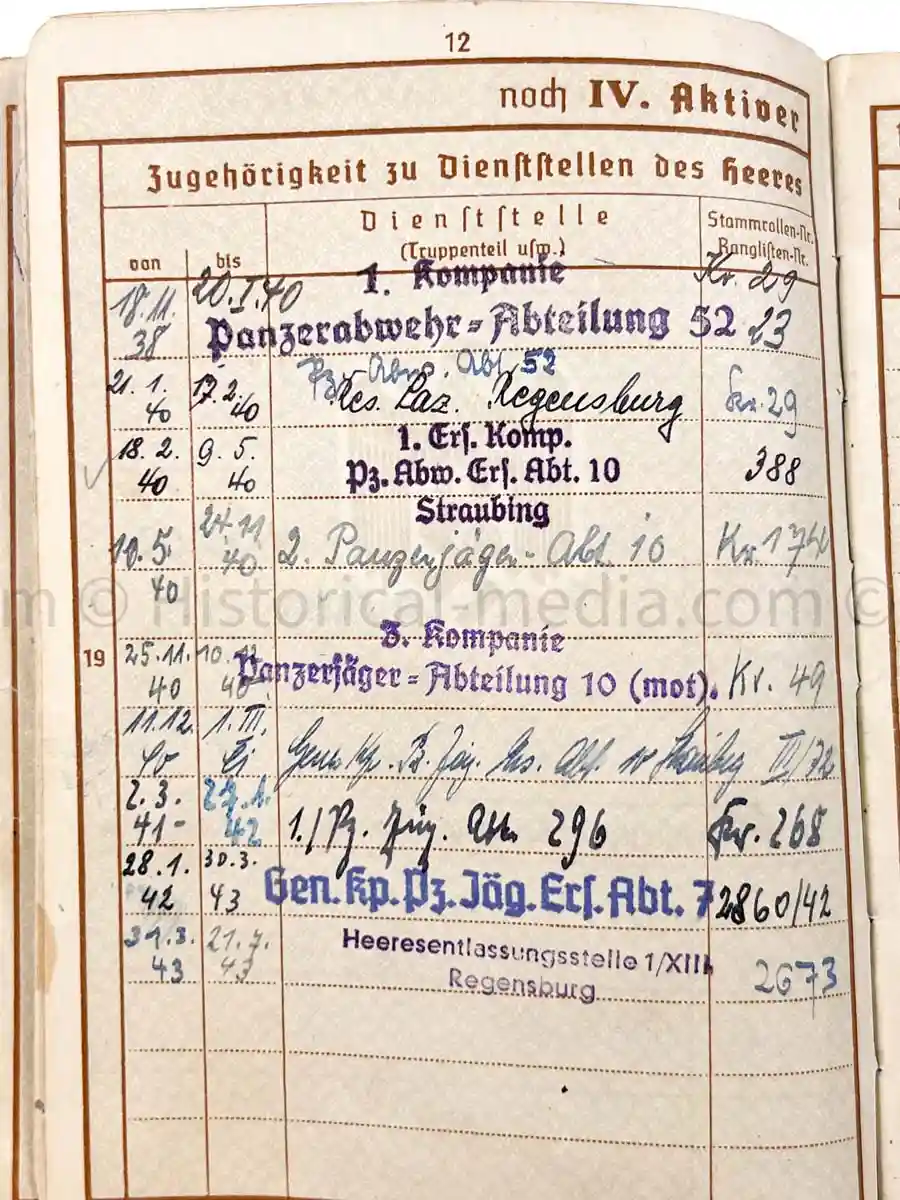 12
noch IV. Aktiver
Zugehörigkeit zu Dienststellen des Heeres
von bis Dienststelle (Truppenteil usw.) Stammrollen-Nr. Ranglisten-Nr.
18.11. 38 20.I.40 1. Kompanie Kr. 29
Panzerabwehr-Abteilung 52 23
Pz.-Abw. Abt. 52
21.1. 40 17.2. 40 Res. Laz. Regensburg Kr. 29
18.2. 40 9.5. 40 1. Ers. Komp.
Pz. Abw. Ers. Abt. 10 388
Straubing
10.5. 40 24.11 40 2. Panzerjäger-Abt. 10 Kr. 174
19
25.11. 40 10.12 40 3. Kompanie
Panzerjäger-Abteilung 10 (mot). Kr. 49
11.12. 40 1.III. 41 Gen. Kp. Pz. Jäg. Ers. Abt. 10 III/72
2.3. 41- 27.1. 42 1./Pz. Jäg. Abt. 296 Kr. 268
28.1. 42 30.3. 43 Gen. Kp. Pz. Jäg. Ers. Abt. 7 2860/42
31.3. 43 21.7. 43 Heeresentlassungsstelle 1/XIII
Regensburg 2673
m © Historical-media.com ©